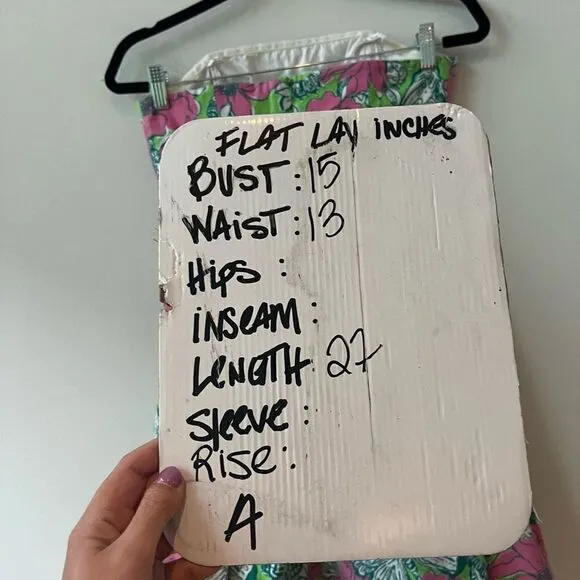 FLAT LAY INCHES
BUST: 15
WAiST: 13
Hips :
iNSeAM :
LeNGTH: 27
Sleeve :
Rise:
A